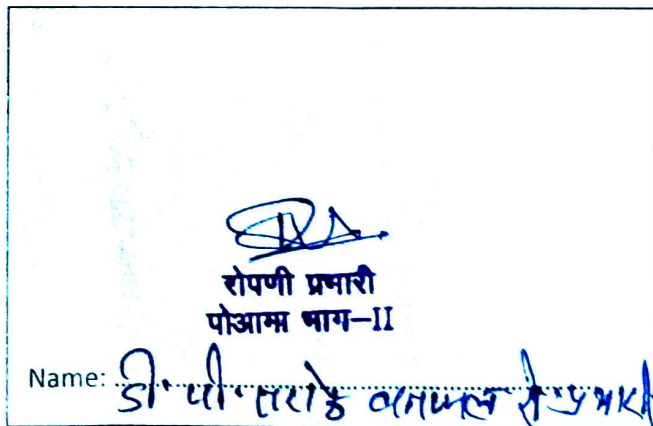 रोपणी प्रभारी
पोआमा भाग-II
Name: डी. पी. सराठे वनपाल रो. प्रभारी